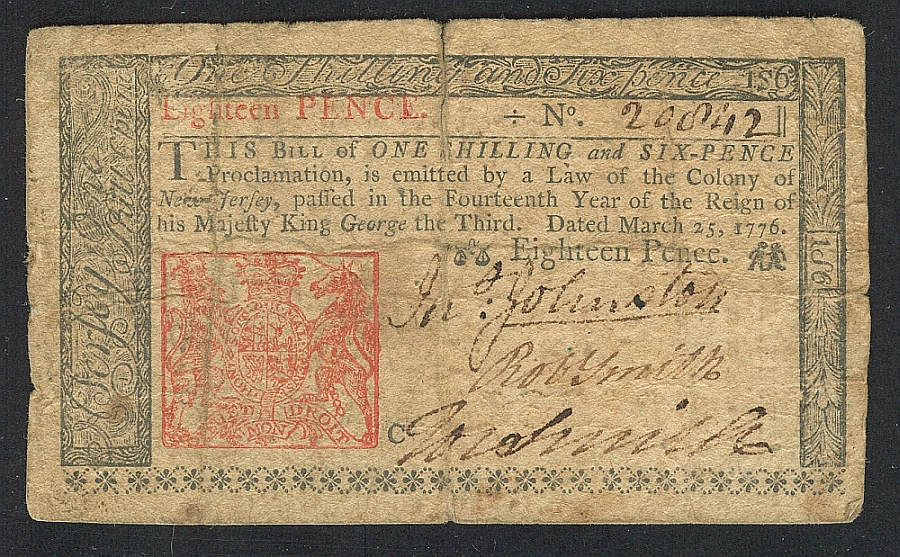 One Shilling and Six-pence 1s6
Eighteen PENCE. ÷ No. 20842
THIS BILL of ONE SHILLING and SIX-PENCE
Proclamation, is emitted by a Law of the Colony of
New-Jersey, paſſed in the Fourteenth Year of the Reign of
his Majeſty King George the Third. Dated March 25, 1776.
Eighteen Pence.
Jno. Johnston
Robt Smith
C
DROIT
MON
1s6